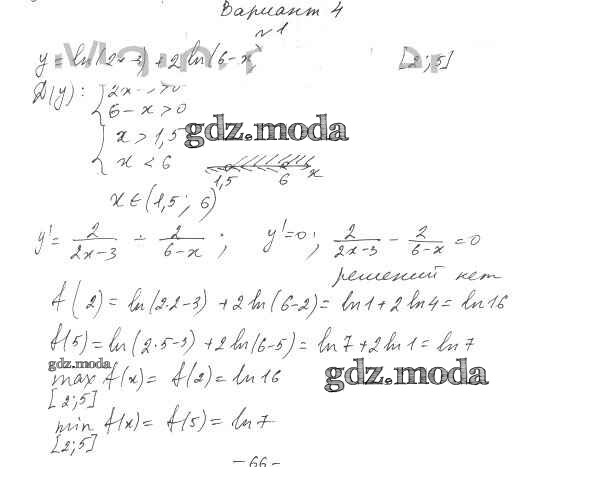 Вариант 4
№1
y = ln(2x-3) + 2 ln(6-x) [2; 5]
D(y): { 2x-3>0
6-x>0
gdz.moda
{ x > 1,5
x < 6
1,5 6 x
x ∈ (1,5; 6)
y' = 2/(2x-3) - 2/(6-x) ; y'=0; 2/(2x-3) - 2/(6-x) = 0
решений нет
f(2) = ln(2·2-3) + 2 ln(6-2) = ln1 + 2 ln4 = ln16
f(5) = ln(2·5-3) + 2 ln(6-5) = ln7 + 2 ln1 = ln7
gdz.moda
max f(x) = f(2) = ln16
gdz.moda
[2;5]
min f(x) = f(5) = ln7
[2;5]
-66-